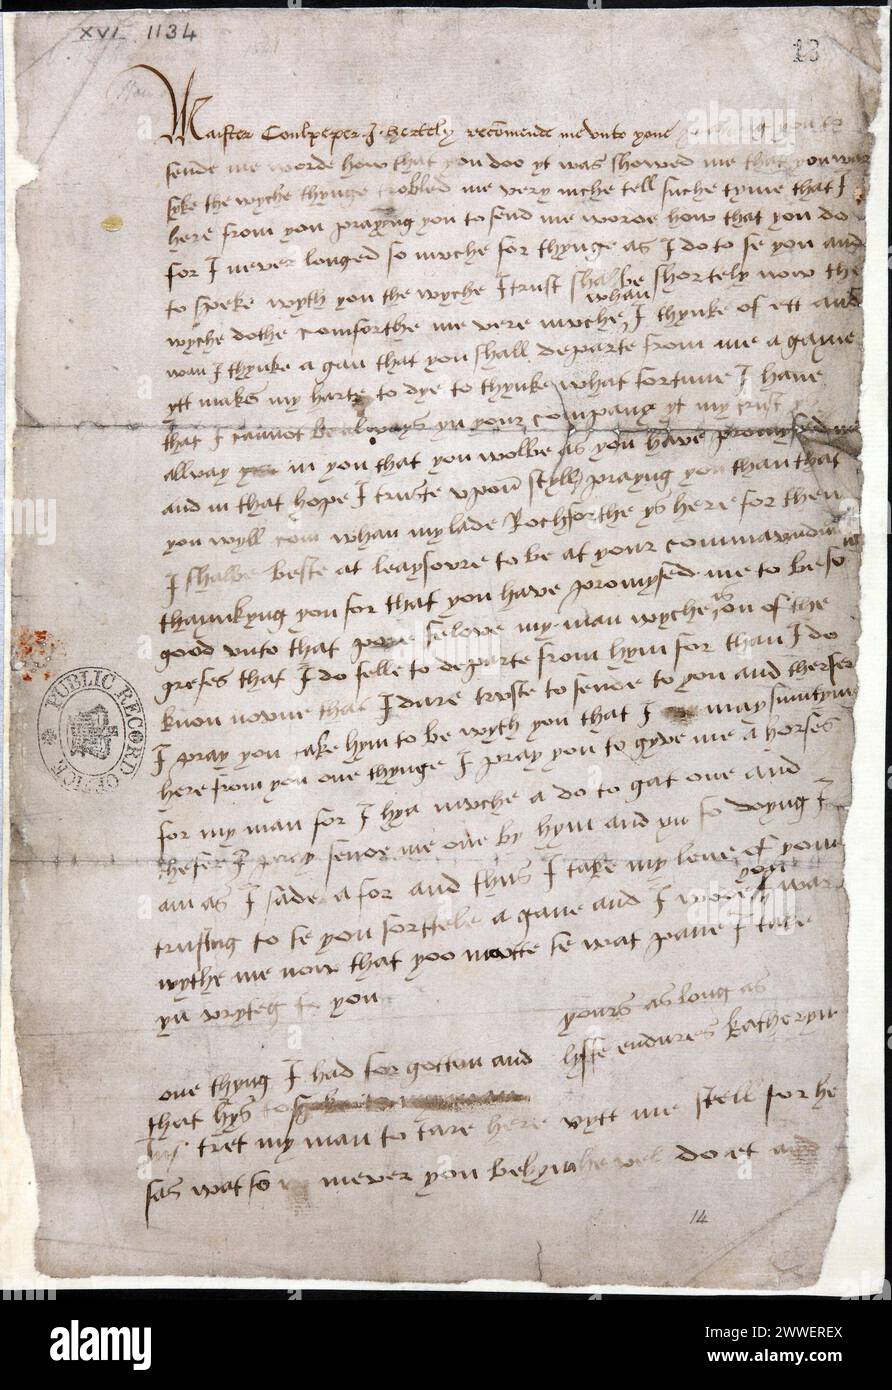 XVI 1134
13
Maister Coulpeper I hertely recomende me unto youe praying you to
sende me worde how that you doo yt was showed me that you was
syke the wyche thynge trobled me very muche tell suche tyme that I
here from you prayng you to send me worde how that you do
for I never longed so muche for thynge as I do to se you and
to speke wyth you the wyche I trust shalbe shortely now the
wyche dothe comforthe me verie muche whan I thynke of ett and
wan I thynke agan that you shall departe from me agane
ytt makes my harte to dye to thynke what fortune I have
that I cannot be always yn your company yt my trust ys
allway in you that you wolbe as you have promysed me
and in that hope I truste upon styll prayng you than that
you wyll com whan my lade Rochforthe ys here for then
I shalbe beste at leaysoure to be at your commaundment
thaynkyng you for that you have promysed me to be so
good unto that pore felowe my man wyche is on of the
grefes that I do felle to departe from hym for than I do
know noone that I dare truste to sende to you and therfor
I pray you take hym to be wyth you that I may sumtym
here from you one thynge I pray you to gyve me a horse
for my man for I hyd muche a do to gat one and
therfer I pray sende me one by hym and yn so doyng I
am as I sade afor and thus I take my leve of you
trusting to se you shorttele agane and I wode you was
wythe me now that yoo maitte se wat pane I take
yn wryteg to you
yours as long as
lyffe endures Katheryn
one thyng I had forgotten and
that hys to
tret my man to tare here wytt me stell for he
sas wat so mever you bed hym he wel do et and
14
PUBLIC RECORD OFFICE
alamy
Image ID: 2WWEREX
www.alamy.com